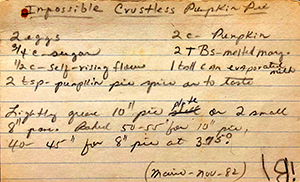 Impossible Crustless Pumpkin Pie
2 eggs 2 c - Pumpkin
3/4 c - sugar 2 TBs - melted marg.
1/2 c - self-rising flour 1 tall can evaporated milk
2 tsp - pumpkin pie spice or to taste
Lightly grease 10" pie plate or 2 small
8" pans. Bake 50-55" for 10" pie,
40-45" for 8" pie at 375°
(Marie - Nov - 82)